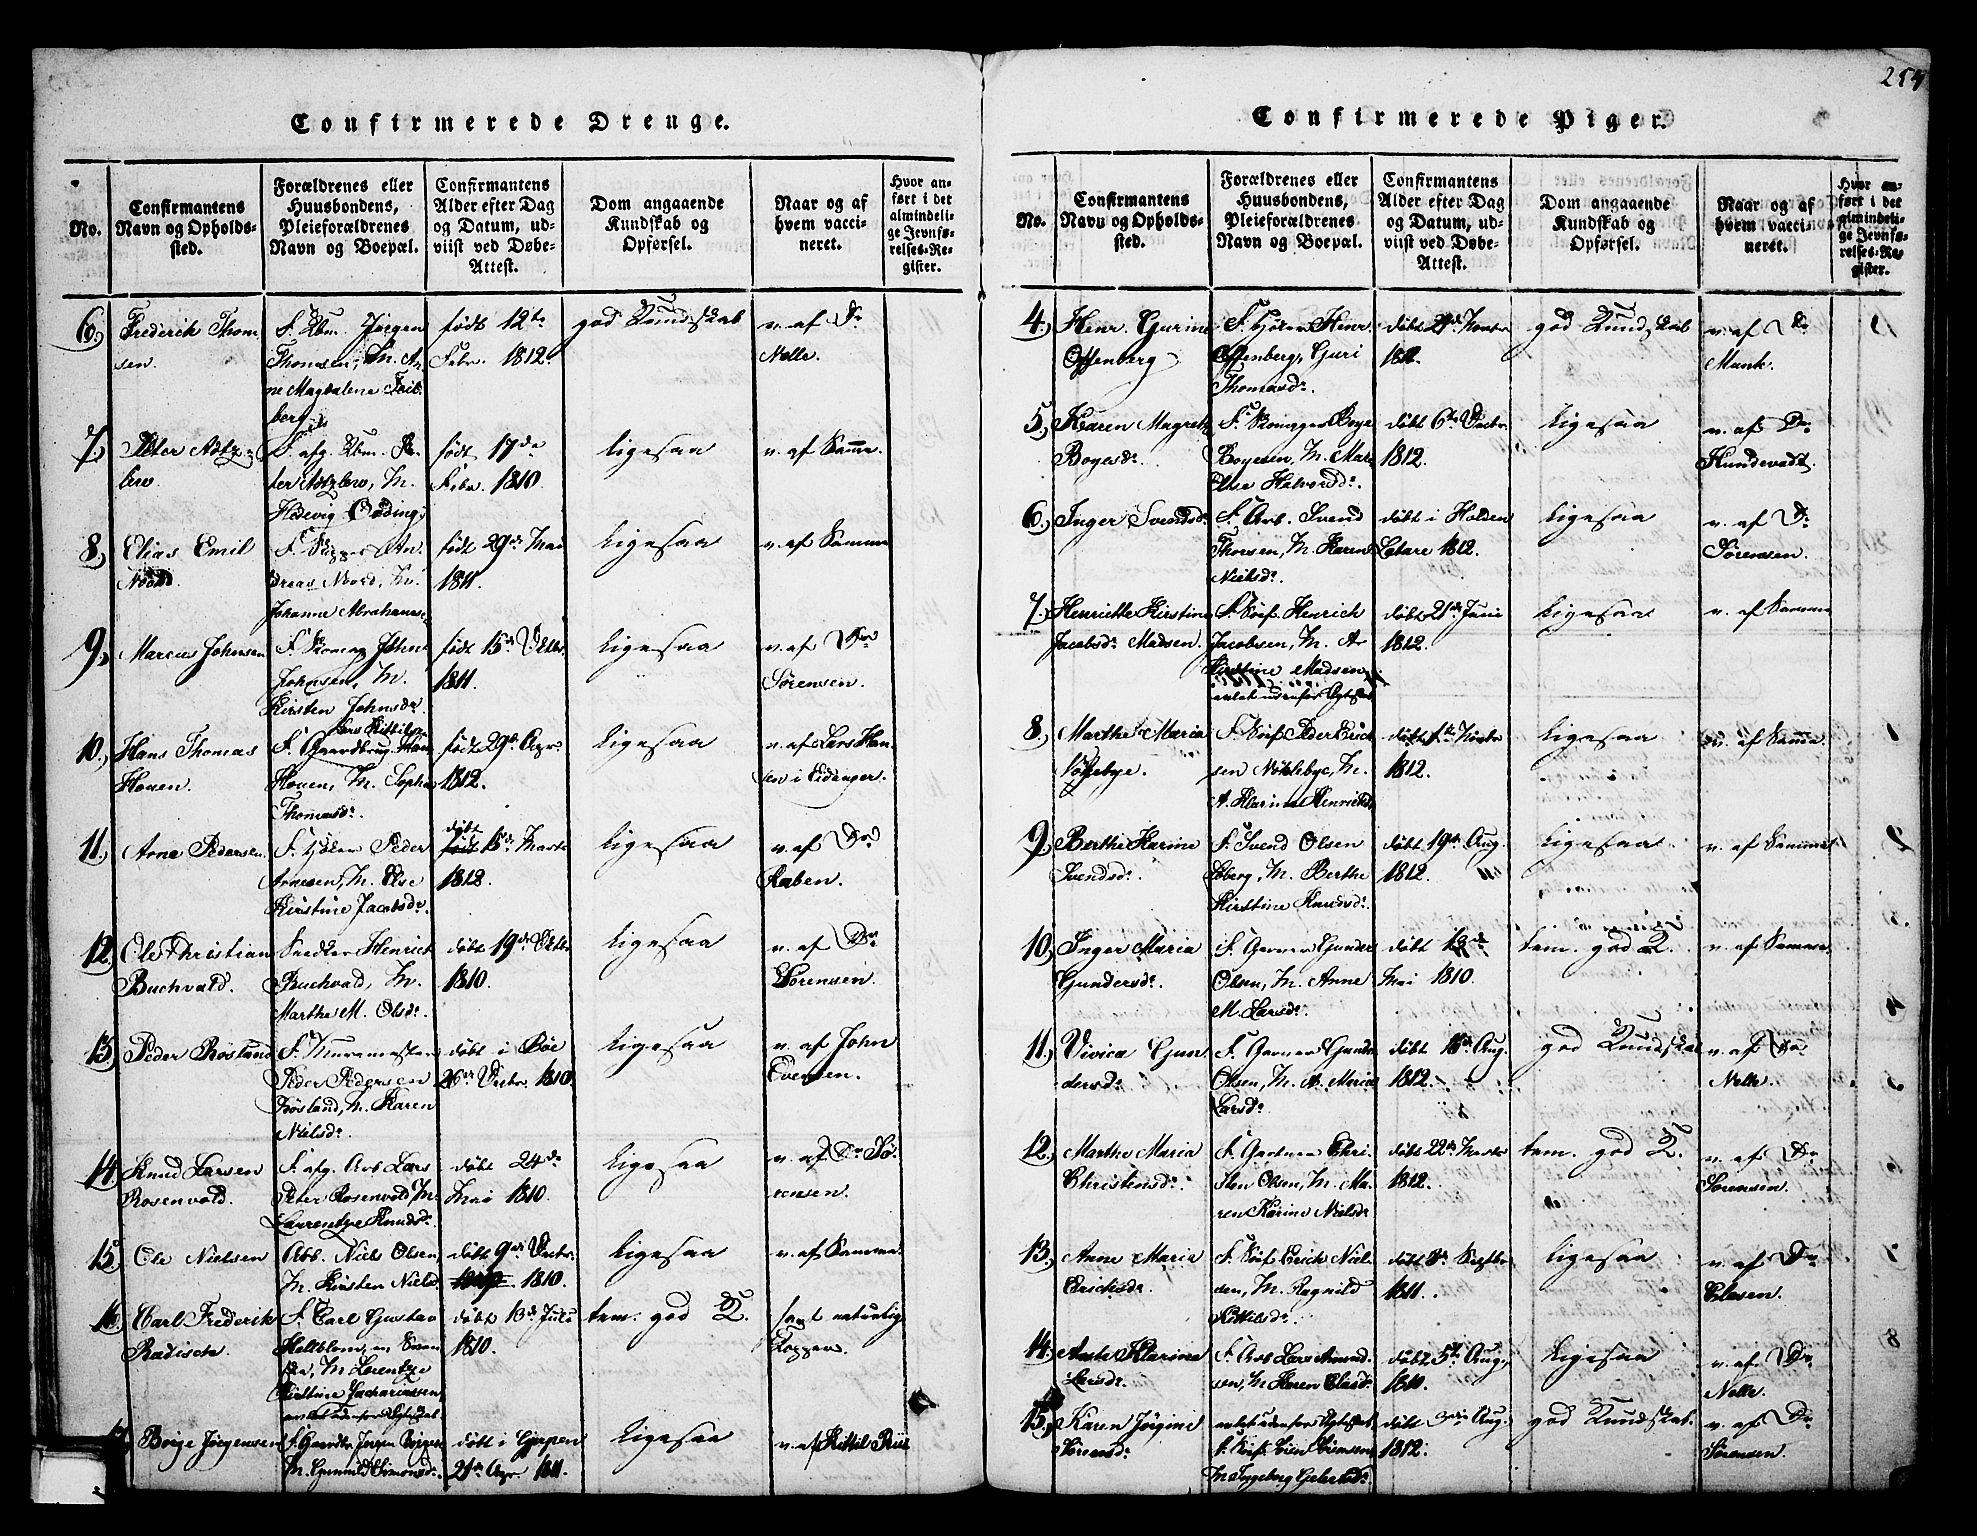 254
Confirmerede Drenge.
No.
Confirmantens
Navn og Opholds-
sted.
Forældrenes eller
Huusbondens,
Pleieforældrenes
Navn og Boepæl.
Confirmantens
Alder efter Dag
og Datum, ud-
viist ved Døbe-
Attest.
Dom angaaende
Kundskab og
Opførsel.
Naar og af
hvem vacci-
neret.
Hvor an-
ført i det
almindeli-
ge Jevnfø-
relses-Re-
gister.
6.) Frederik Thom
sen.
F. Kbm. Jørgen
Thomsen, M. An
ne Magdalene Feil
berg
født 12te
Febr. 1812.
god Kundskab
v. af Dr
Nelle.
7.)
F. afg. Kbm. Pe
ter
Hedevig
født 17de
Febr. 1810.
ligesaa
v. af Samme.
8.) Elias Emil
F. An
dreas M.
Johanne Abrahams
født 29de Mai
1811.
ligesaa
v. af Samme
9.) Marcus Johnsen
F. John
Johnsen, M.
Kirsten Johnsdr.
født 15de Octbr.
1811.
ligesaa
v. af Dr
Sørensen.
10.) Hans Thomas
Houen.
F. Gaardbrug. Hans
Houen, M. Sophie
Thomasdr.
født 29de Apr.
1812.
ligesaa
v. af Lars Han
sen i Eidanger.
11.) Arne Pedersen.
F. Tjener Peder
Arnesen, M. Else
Kirstine Jacobsdr.
døbt
født 15de Marts
1812.
ligesaa
v. af Dr
Raben.
12.) Ole Christian
Buchvald.
Snedker Henrich
Buchvald, M.
Marthe M. Olsdr.
døbt 19de Octbr
1810.
ligesaa
v. af Dr
Sørensen.
13.) Peder Røsland
F.
Peder Pedersen
Røsland, M. Karen
Nielsdr.
døbt i Bøe
26de Decbr. 1810.
ligesaa
v. af John
Evensen.
14.) Knud Larsen
Rosenvold.
F. afg. Arb. Lars
Peter Rosenvold, M.
Laurentze Knudsdr.
døbt 24de
Mai 1810.
ligesaa
v. af Dr Sø
rensen.
15.) Ole Nielsen
Arb. Niels Olsen,
M. Kirsten Nielsdr
døbt 9de Decbr.
1810.
ligesaa
v. af Samme.
16.) Carl Frederik
Radisch.
F. Carl Gustav
Hellblom, en Sven
ske, M. Lorentze
Kirstine Zachariassen,
avlet udenfor Egteskab
døbt 13de Juli
1810.
tem. god K.
havt naturlig
Kopper.
17.) Boige Jørgensen
F. Gaardbr. Jørgen Boigesen
M. Gunnild Simonsdr.
døbt i Gjerpen
21de Apr. 1811.
ligesaa
v. af Kittil Riis
Confirmerede Piger.
No.
Confirmantens
Navn og Opholds-
sted.
Forældrenes eller
Huusbondens,
Pleieforældrenes
Navn og Boepæl.
Confirmantens
Alder efter Dag
og Datum, ud-
viist ved Døbe-
Attest.
Dom angaaende
Kundskab og
Opførsel.
Naar og af
hvem vacci-
neret.
Hvor an-
ført i det
almindeli-
ge Jevnfø-
relses-Re-
gister.
4.) Henr. Gurine
Offenberg
F. Tjener Henr.
Offenberg, Guri
Thomasdr.
døbt 29de Novbr
1812.
god Kundskab
v. af Dr
Munk.
5.) Karen Magreth
Boyesdr.
F. Boye
Boyesen, M. Mar.
Else Halvordr.
døbt 6te Decbr.
1812.
ligesaa
v. af Dr
Hundevadt.
6.) Inger Svendsdr.
F. Arb. Svend
Thorsen, M. Karen
Nielsdr.
døbt i Holden
Letare 1812.
ligesaa
v. af Dr
Sørensen.
7.) Henriette Kirstine
Jacobsdr. Madsen.
F. Søef. Henrich
Jacobsen, M. A.
Kirstine Madsen,
avlet udenfor Egtesk.
døbt 21de Juni
1812.
ligesaa
v. af Samme
8.) Marthe Maria
F. Søef. Peder Erich
sen Nøklebye, M.
A. Marine Henrichsdr
døbt 1te Novbr
1812.
ligesaa
v. af Samme.
9.) Berthe Karine
Svendsdr.
F. Svend Olsen
M. Berthe
Kirstine Knudsdr.
døbt 19de Aug.
1812.
ligesaa
v. af Samme
10.) Inger Maria
Gundersdr.
F. Garver Gunder
Olsen, M. Anne
M. Larsdr.
døbt 13de
Mai 1810.
tem. god K.
v. af Samme.
11.) Vivica Gun
dersdr.
F. Garver Gunder
Olsen, M. A. Maria
Larsdr.
døbt 16de Aug.
1812.
god Kundskab
v. af Dr
Nelle.
12.) Marthe Maria
Christensdr.
F. Gartner Chri
sten Olsen, M. Ma
ren Karine Nielsdr
døbt 22de Marts
1812.
tem. god K.
v. af Dr
Sørensen.
13.) Anne Maria
Erichsdr.
F. Søef. Erich Niel
sen, M. Ragnild
Kittilsdr.
døbt 8de Septbr
1811.
ligesaa
v. af Dr
Clasen.
14.) Aaste Klarine
Larsdr.
F. Arb. Lars Amund
sen, M. Karen Olsdr.
døbt 5te Aug.
1811.
ligesaa
v. af Dr
Nelle.
15.) Karen Jørgine
avlet udenfor Egteskab
F. Søef.
M. Ingeborg
døbt Aug.
1812.
god Kundskab.
v. af Dr
Sørensen.